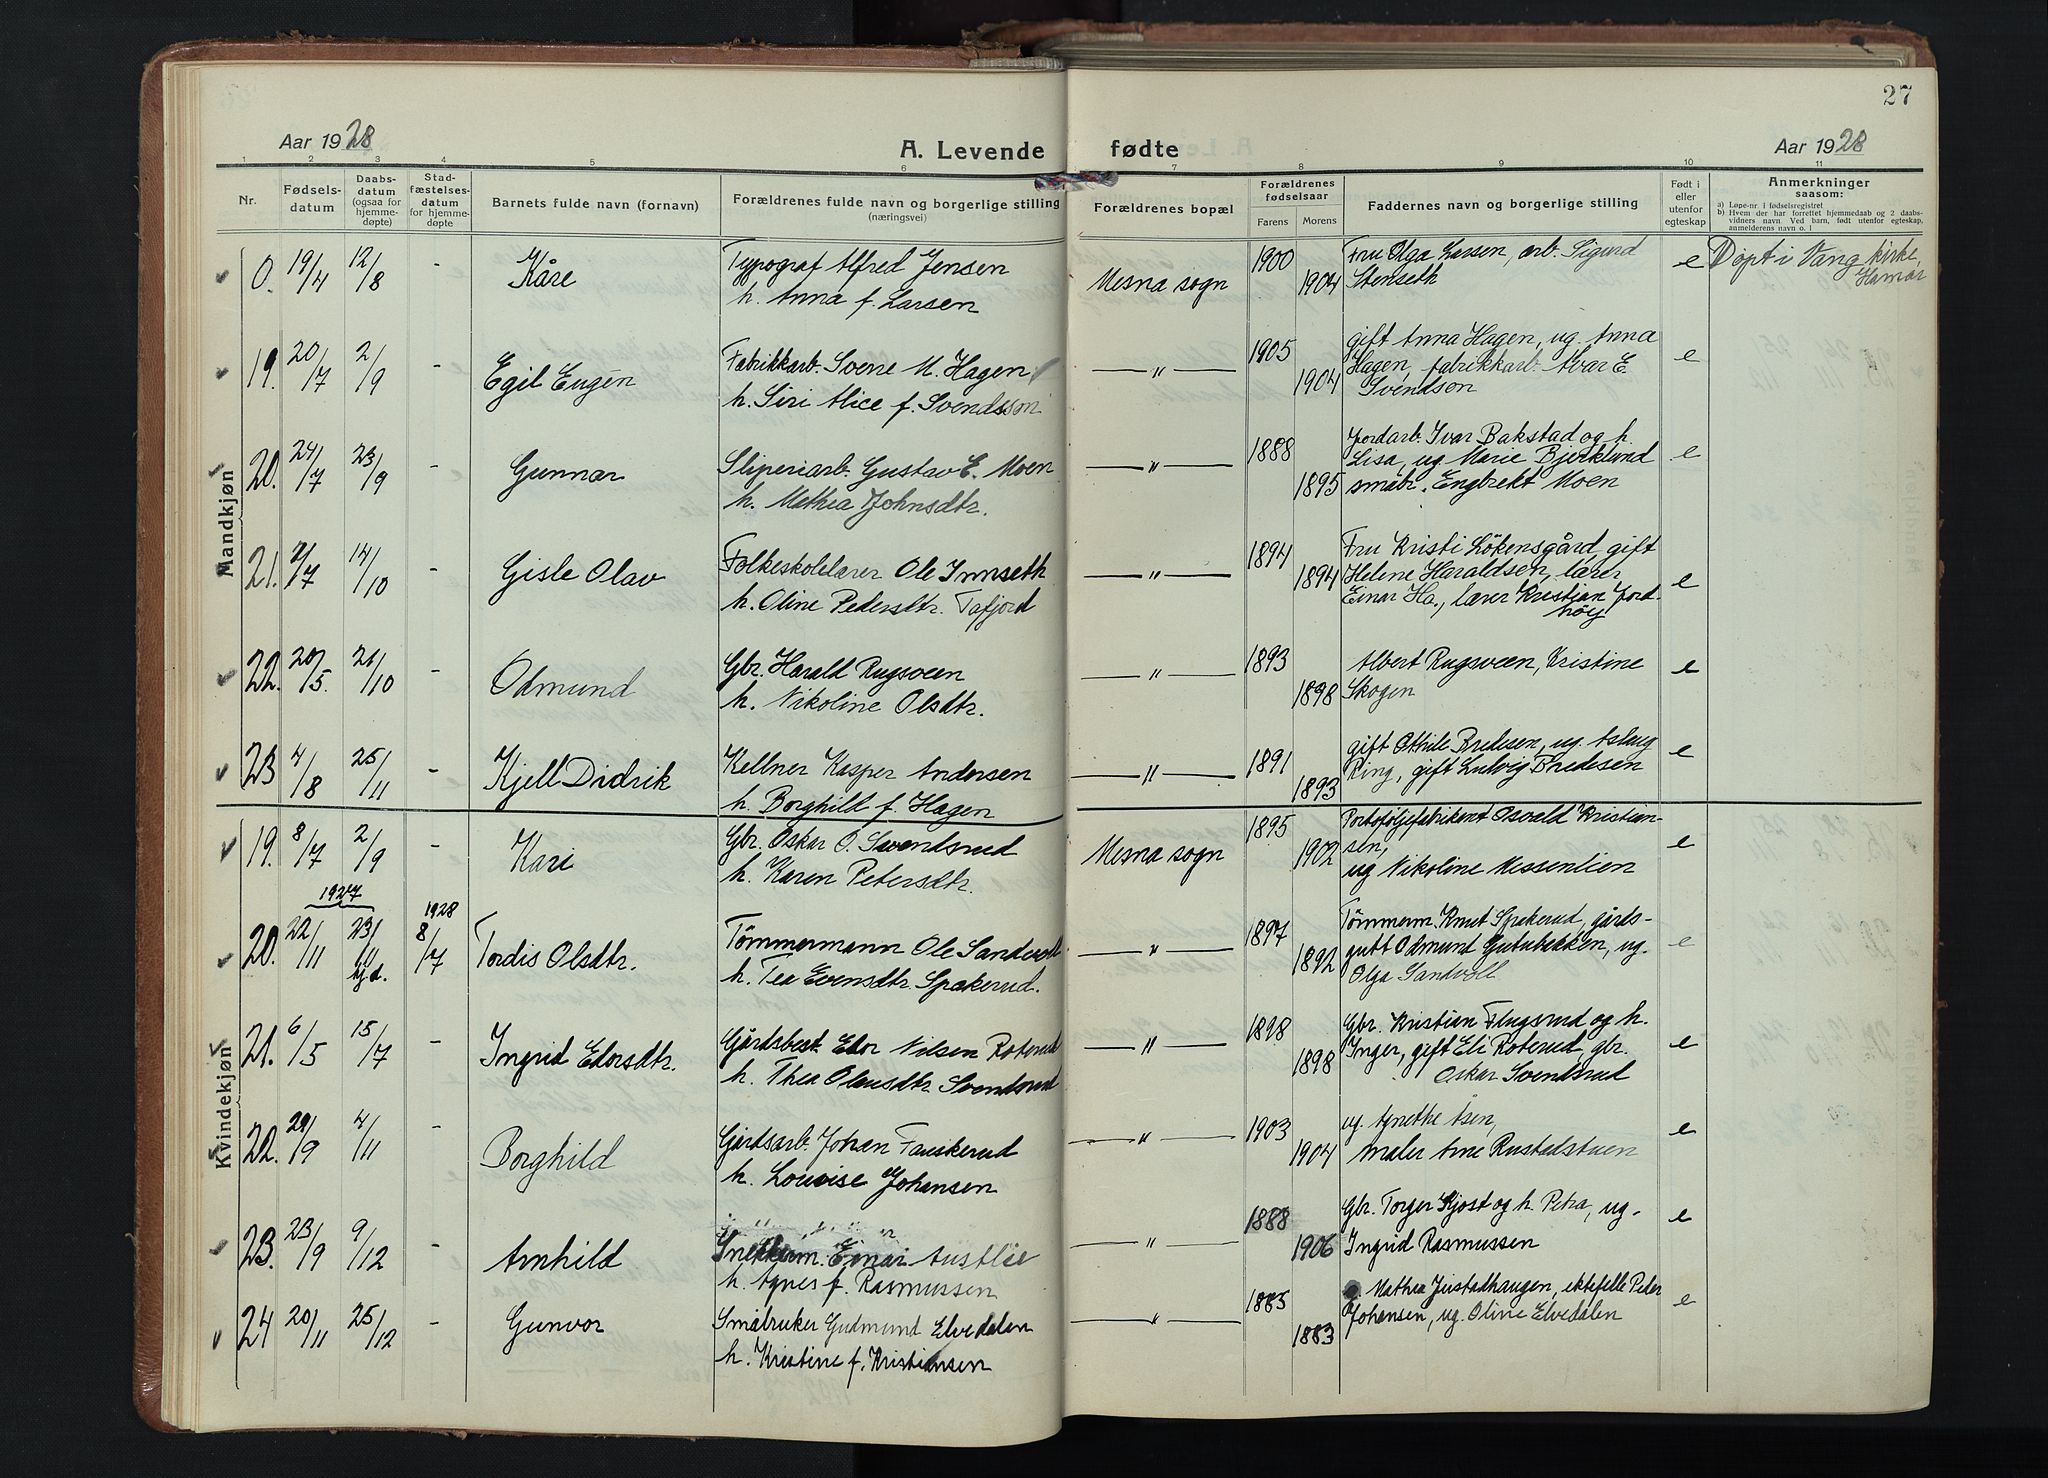 27
Aar 1928
A. Levende fødte
Aar 1928
1 2 3 4 5 6 7 8 9 10 11
Nr.
Fødsels-
datum
Daabs-
datum
(ogsaa for
hjemme-
døpte)
Stad-
fæstelses-
datum
for hjemme-
døpte
Barnets fulde navn (fornavn)
Forældrenes fulde navn og borgerlige stilling
(næringsvei)
Forældrenes bopæl
Forældrenes
fødselsaar
Farens Morens
Faddernes navn og borgerlige stilling
Født i
eller
utenfor
egteskap
Anmerkninger
saasom:
a) Løpe-nr. i fødselsregistret
b) Hvem der har forrettet hjemmedaab og 2 daabs-
vidners navn. Ved barn, født utenfor egteskap,
anmelderens navn o. l.
Mandkjøn
0. 19/4 12/8 - Kåre
Typograf Alfred Jensen
h. Anna f. Larsen
Mesna sogn 1900 1904
Fru Olga Larsen, arb. Sigurd
Stenseth
e Døpt i Vang kirke,
Hamar
19. 20/7 2/9 - Egil Eugén
Fabrikkarb. Svene M. Hagen
h. Siri Alice f. Svendsson
— " — 1905 1904
gift Anna Hagen, ug. Anna
Hagen, fabrikkarb. Ivar E.
Svendson
e
20. 24/7 23/9 - Gunnar
Sliperiarb. Gustav E. Moen
h. Mathea Johnsdtr.
— " — 1888 1895
Jordarb. Ivar Bakstad og h.
Lisa, ug Marie Bjerklund
småbr. Engbrekt Moen
e
21. 7/7 14/10 - Gisle Olav
Folkeskolelærer Ole Innseth
h. Oline Pedersdtr. Tafjord
— " — 1894 1894
Fru Kristi Lökensgård, gift
Helene Haraldsen, lærer
Einar Ha., lærer Kristian Jord-
höy
e
22. 20/5. 21/10 - Odmund
Gbr. Harald Rugsveen
h. Nikoline Olsdtr.
— " — 1893 1898
Albert Rugsveen, Kristine
Skogen
e
23 4/8 25/11 - Kjell Didrik
Kellner Kasper Andersen
h. Borghild f. Hagen
— " — 1891 1893
gift Othile Bredesen, ug. Aslaug
Ring, gift Ludvig Bredesen
e
Kvindekjøn
19. 8/7 2/9 - Kari
Gbr. Oskar O. Svendsrud
h. Karen Petersdtr.
Mesna sogn 1895 1902
Portoføljefabrikant Osvald Kristian-
sen,
ug Nikoline Messenlien
e
1927
1928
20. 22/11 23/11 hjd. 8/7 Tordis Olsdtr.
Tömmermann Ole Sandvoll
h. Tea Evensdtr. Spakerud.
— " — 1897 1892
Tömmerm. Knut Spakerud, gårds-
gutt Odmund Gutubakken, ug.
Olga Sandvoll
e
21. 6/5 15/7 - Ingrid Edorsdtr.
Gårdsbest. Edor Nilsen Roterud
h. Thea Olausdtr Svendsrud
— " — 1898 1898
Gbr. Kristian Flugsrud og h.
Inger, gift Eli Roterud, gbr.
Oskar Svendsrud
e
22. 29/9 4/11 - Borghild
Gårdsarb. Johan Fauskerud
h. Lovise Johansen
— " — 1903 1904
ug. Agnethe Åsen,
maler Arne Rustadstuen
e
23. 23/9 9/12 - Arnhild
Snekkerm. Einar Austlie
h. Agnes f. Rasmussen
— " — 1888 1906
Gbr. Torger Kjost og h. Petra, ug.
Ingrid Rasmussen
e
24 20/11 25/12 - Gunvor
Småbruker Gudmund Elvedalen
h. Kristine f. Kristiansen
— " — 1885 1883
Mathea Justadhaugen, ektefelle Peter
Johansen, ug. Oline Elvedalen
e